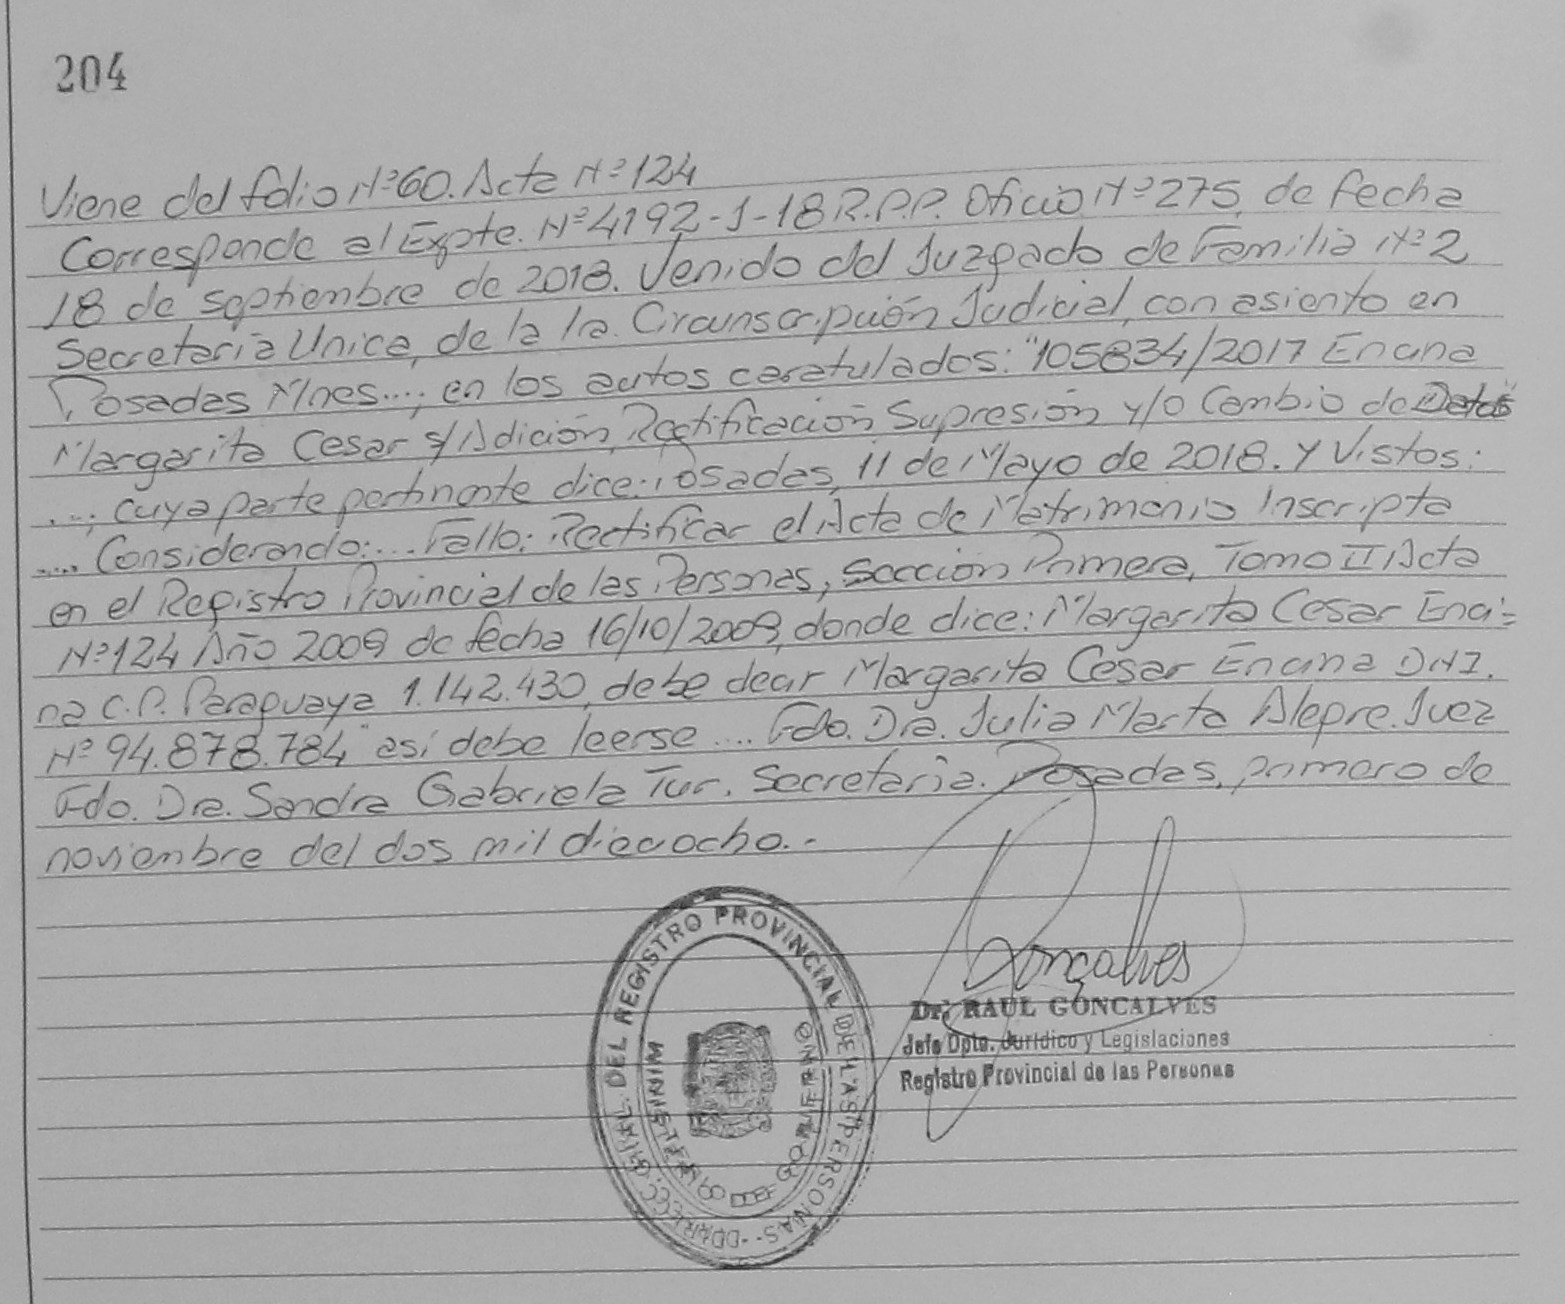 204
Viene del folio Nº60. Acta Nº124
Corresponde al Expte. Nº4192-J-18 R.P.P. Oficio Nº275, de fecha
18 de septiembre de 2018. Venido del Juzgado de Familia Nº2
Secretaria Unica, de la 1ra. Circunscripción Judicial, con asiento en
Posadas Mnes....; en los autos caratulados: "105834/2017 Encina
Margarita Cesar s/Adición, Rectificación Supresión y/o Cambio de Datos"
...; cuya parte pertinente dice: Posadas, 11 de Mayo de 2018. Y Vistos:
.... Considerando:... Fallo: Rectificar el Acta de Matrimonio Inscripta
en el Registro Provincial de las Personas, Sección Primera, Tomo II Acta
Nº124 Año 2009 de fecha 16/10/2009, donde dice: Margarita Cesar Enci=
na C.P. Paraguaya 1.142.430, debe decir Margarita Cesar Encina D.N.I.
Nº 94.878.784" así debe leerse.... Fdo. Dra. Julia Marta Alegre. Juez
Fdo. Dra. Sandra Gabriela Tur. Secretaria. Posadas, primero de
noviembre del dos mil dieciocho.-
DIRECC. GRAL. DEL REGISTRO PROVINCIAL DE LAS PERSONAS -
MINISTERIO DE GOBIERNO
Gonçalves
Dr. RAUL GONCALVES
Jefe Dpto. Jurídico y Legislaciones
Registro Provincial de las Personas